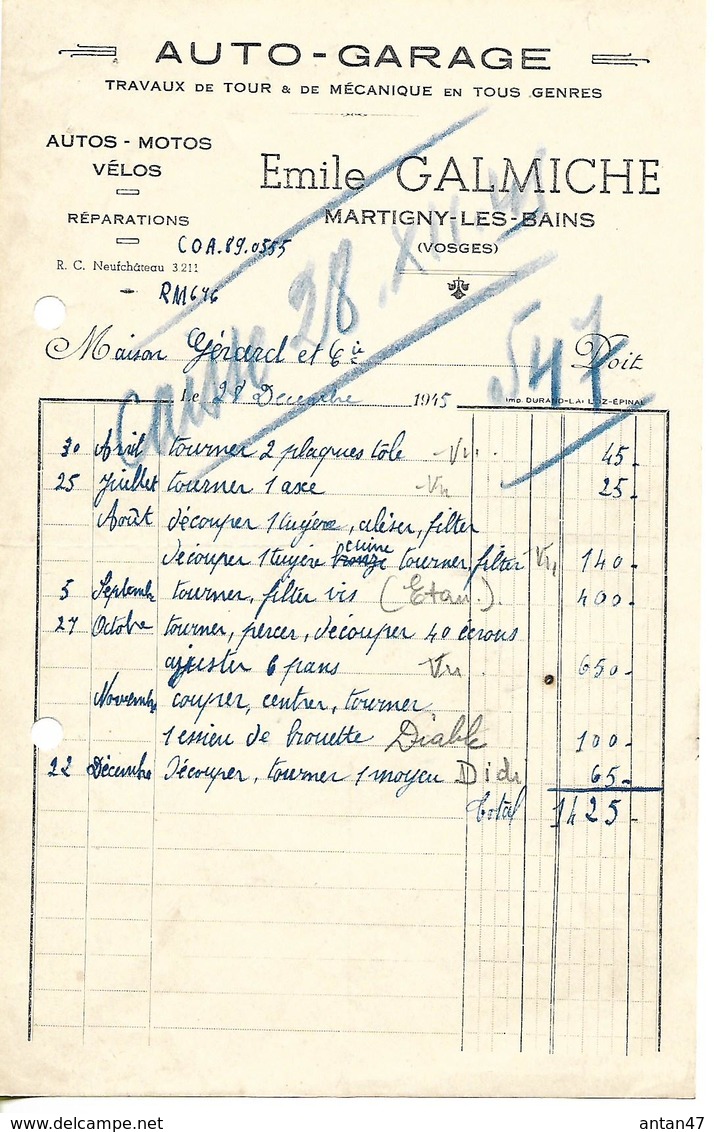 AUTO-GARAGE
TRAVAUX DE TOUR & DE MÉCANIQUE EN TOUS GENRES
AUTOS - MOTOS
VÉLOS
RÉPARATIONS
COA.89.0555
R. C. Neufchâteau 3211
RM646
Emile GALMICHE
MARTIGNY-LES-BAINS
(VOSGES)
Caisse 28.XII.45
547
Maison Gérard et Cie Doit
Le 28 Decembre 1945
Imp. DURAND-LALLOZ-ÉPINAL
30 Avril tourner 2 plaques tôle Vu 45-
25 Juillet tourner 1 axe Vu 25-
Août découper 1 tuyère, aléser, filter
découper 1 tuyère bronze cuivre tourner, filter Vu 140-
5 Septembre tourner, filter vis (Etau.). 400-
27 Octobre tourner, percer, découper 40 écrous
ajuster 6 pans Vu 650-
Novembre couper, centrer, tourner
1 essieu de brouette Diable 100-
22 Décembre découper, tourner 1 moyeu 65-
total 1425-
antan47